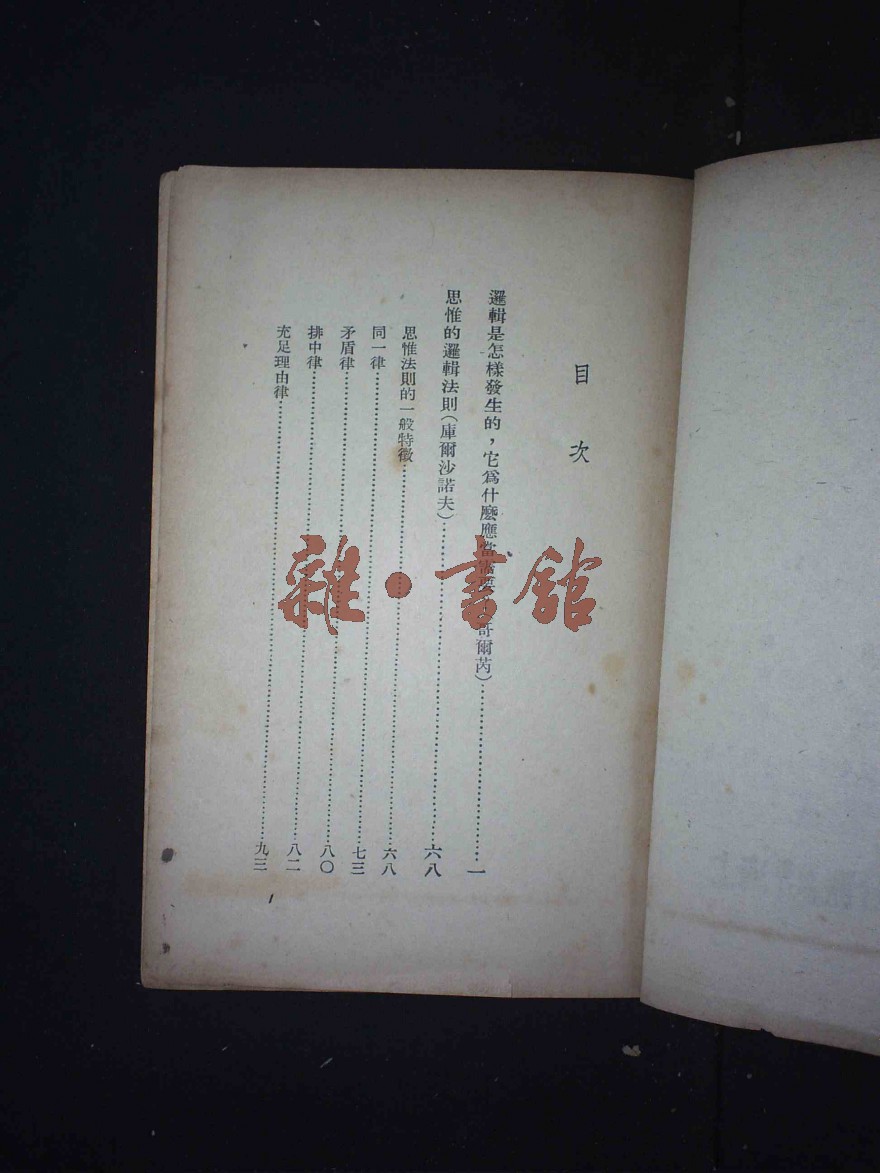 目次
邏輯是怎樣發生的，它爲什麼應當需要（哥爾芮）……一
思惟的邏輯法則（庫爾沙諾夫）……六八
思惟法則的一般特徵……六八
同一律……七三
矛盾律……八〇
排中律……八二
充足理由律……九三
1
雜·書館